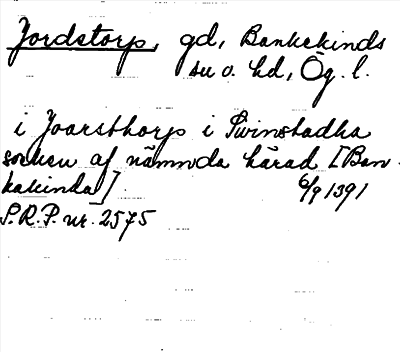 Jordstorp, gd, Bankekinds
sn o. hd, Ög. l.
i Joarsthorp i Swinstadha
soken af nämnda härad [Ban-
kakinda] 6/9 1391
S.R.P. nr. 2575